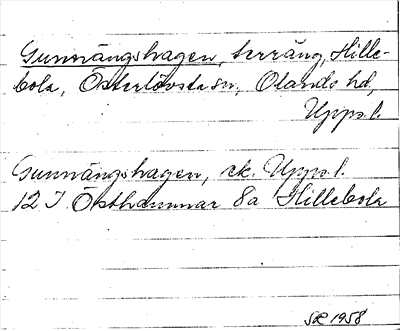 Gunnängshagen, terräng, Hille-
bola, Österlövsta sn, Olands hd,
Upps. l.
Gunnängshagen, ek. Upps. l.
12 I Östhammar 8a Hillebola
SR 1958